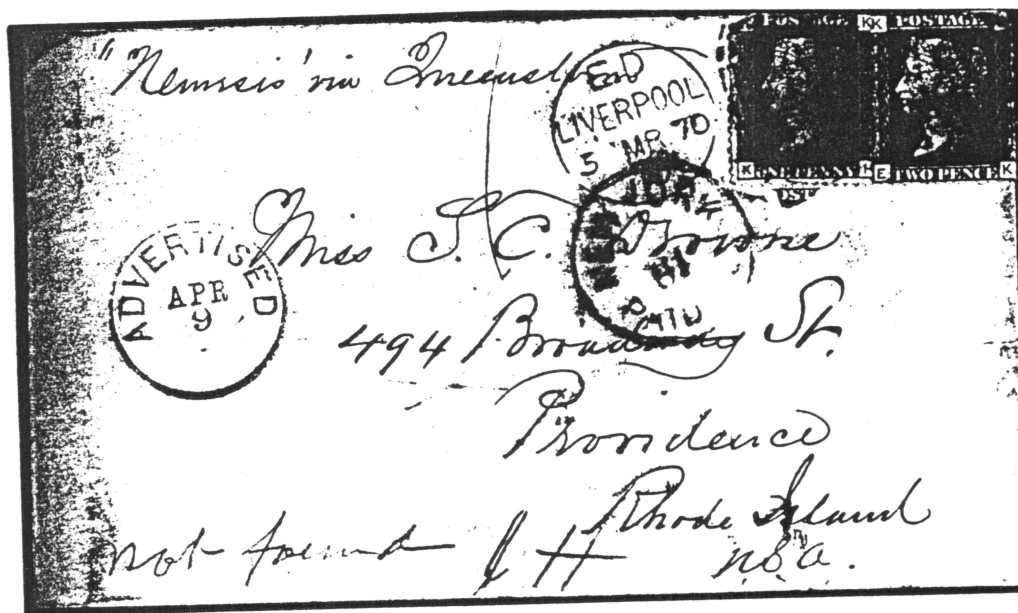 "Nemesis' via Queenstown
ED
LIVERPOOL
5 MR 70
POSTAGE KK POSTAGE
K ONE PENNY E TWO PENCE K
NEW YORK
PAID
ADVERTISED
APR
9
Miss S. C. Browne
494 Broadway St.
Providence
Rhode Island
U.S.A.
not found J H